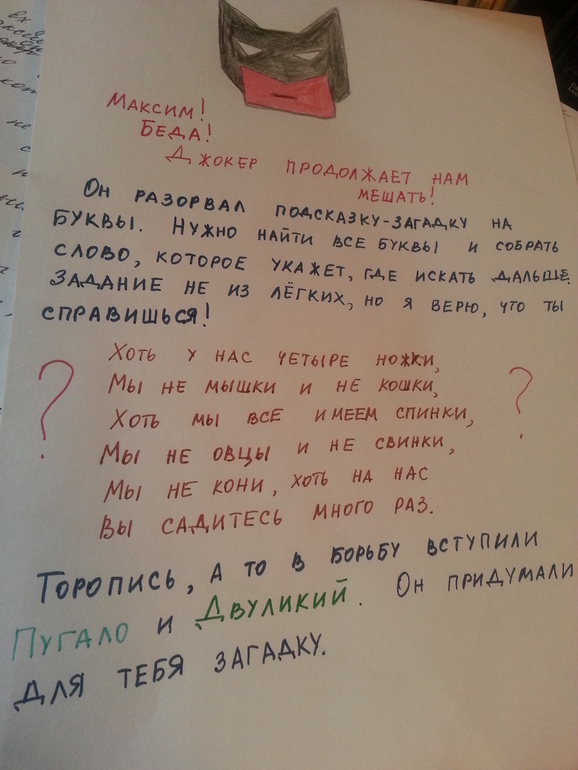 Максим!
Беда!
Джокер продолжает нам
мешать!
Он разорвал подсказку-загадку на
буквы. Нужно найти все буквы и собрать
слово, которое укажет, где искать дальше.
Задание не из лёгких, но я верю, что ты
справишься!
Хоть у нас четыре ножки,
Мы не мышки и не кошки,
Хоть мы все имеем спинки,
Мы не овцы и не свинки,
Мы не кони, хоть на нас
Вы садитесь много раз.
? ?
Торопись, а то в борьбу вступили
Пугало и Двуликий. Он придумали
для тебя загадку.